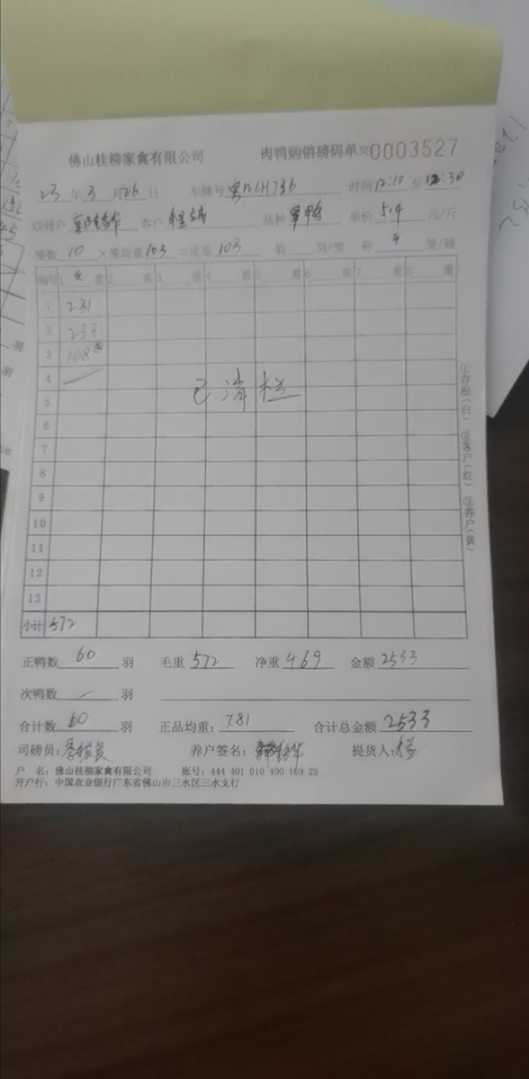 佛山桂柳家禽有限公司 肉鸭购销磅码单 №0003527
23 年 3 月 26 日 车牌号 粤 时间 12:10 至 12:30
客户 品种 单价 5.4 元/斤
笼数 10 × 笼均重 10.3 = 总笼 103 只/笼 称 4 笼/磅
编号 1 重 2 重 3 重 4 重 5 重 6 重 7 重 8 重
1 231
2 233
3 108
4
5 已清栏
6
7
8
9
10
11
12
13
小计 572
正鸭数 60 羽 毛重 572 净重 469 金额 2533
次鸭数 — 羽
合计数 60 羽 正品均重: 7.81 合计总金额 2533
司磅员: 养户签名: 提货人:
户 名: 佛山桂柳家禽有限公司 账号: 444 401 010 400 169 25
开户行: 中国农业银行广东省佛山市三水区三水支行
①存根(白) ②客户(红) ③养户(黄)